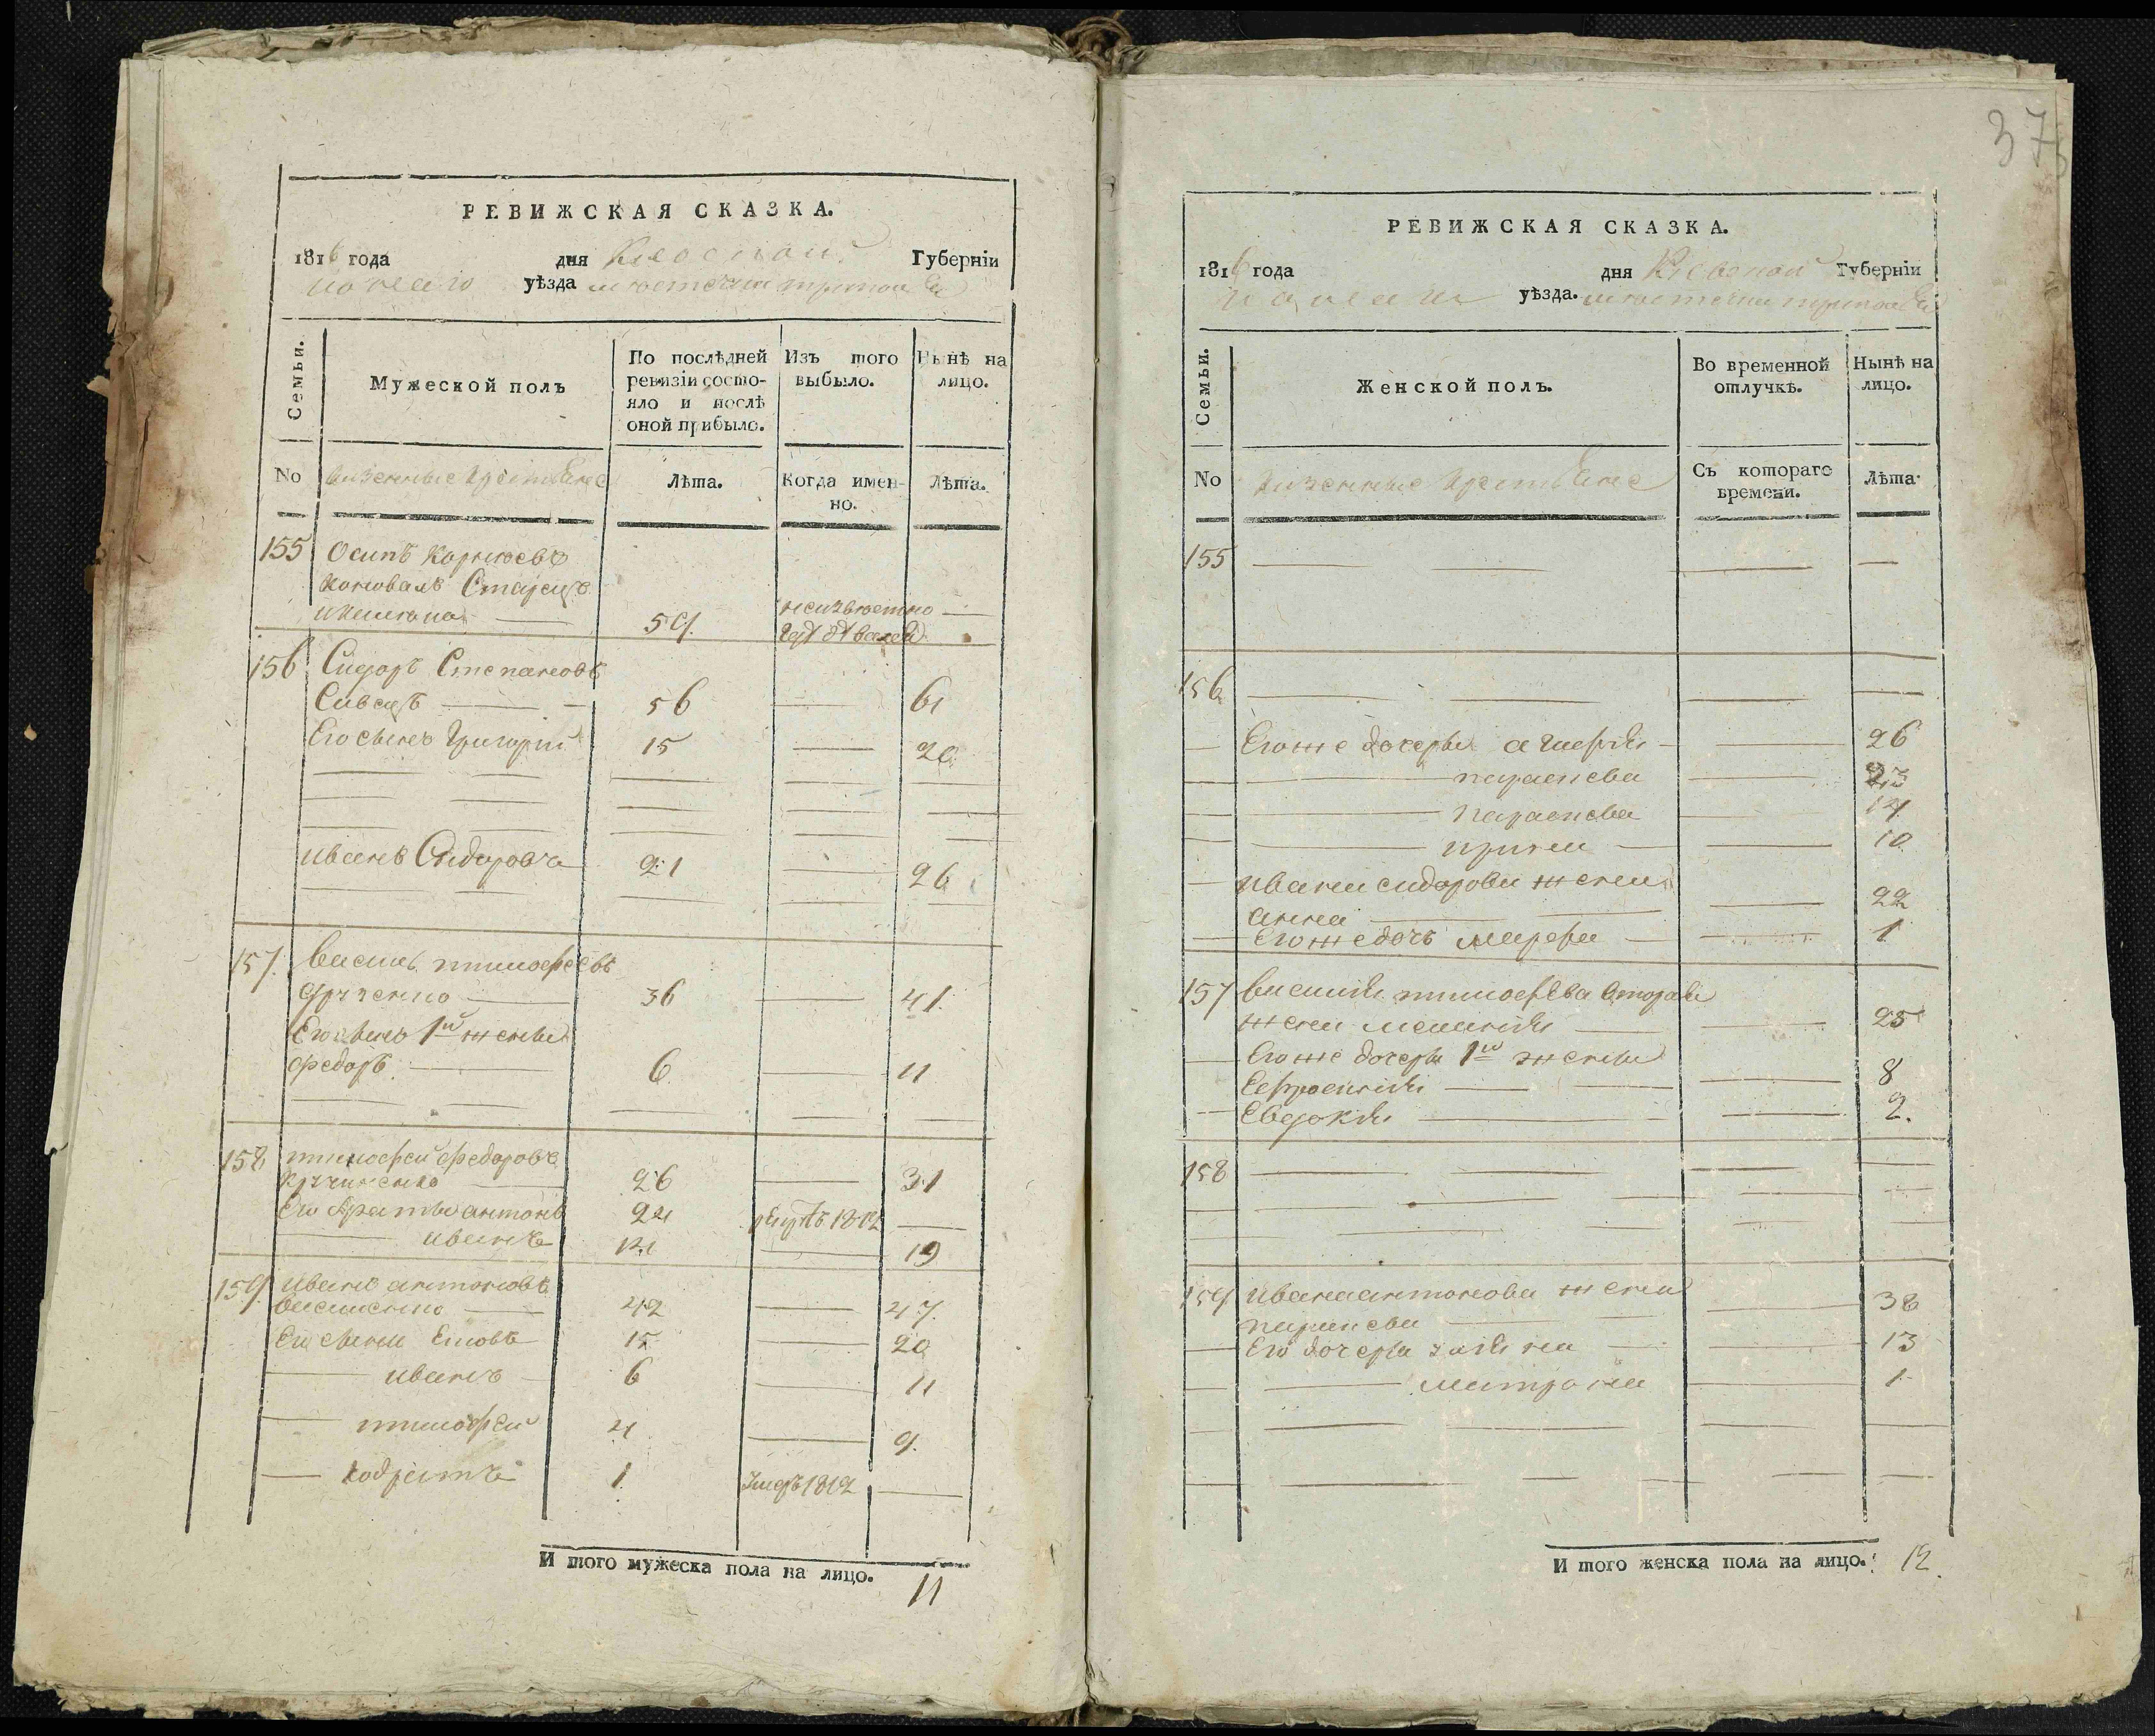 37
РЕВИЖСКАЯ СКАЗКА.
1816 года дня Киевской Губерніи
уѣзда
Семьи.
Мужеской полъ
По послѣдней ревизіи состо-
яло и послѣ
оной прибыло.
Изъ того
выбыло.
Нынѣ на
лицо.
No
казенные
Лѣта.
Когда имен-
но.
Лѣта.
155 Осипъ Корнѣевъ
Коновалъ Старецъ
59. неизвѣстно —
156 Сидоръ Степановъ
Сивецъ — 56 — 61
Его сынъ Григорій 15 — 20
Иванъ Сидоровъ 21 — 26
157. Василь тимофѣевъ
— 36 — 41.
Его сынъ 1й жены
Федоръ. — 6 — 11
158 тимофей федоровъ
— 26 — 31
Его братъ антонъ 24 1812 —
— иванъ 14 — 19
159. Иванъ антоновъ
Василенко — 42 — 47.
Его сыны 15 — 20
— иванъ — 6 — 11
— тимофей 4 — 9.
— кодратъ 1 Умеръ 1812 —
И того мужеска пола на лицо. 11
РЕВИЖСКАЯ СКАЗКА.
1816 года дня Киевской Губерніи
уѣзда.
Семьи.
Женской полъ.
Во временной
отлучкѣ.
Нынѣ на
лицо.
No
казенные
Съ котораго
времени.
Лѣта.
155 — — — —
156 — — — —
— Егоже дочери — — 26
— — параскева — 23
— — параскева — 14
— — ирина — — 10
— ивана сидорова жена
анна — — — 22
— Егоже дочь марфа — — 1
157 василія тимофѣева вторая
жена меланія — — 25
— Егоже дочери 1й жены
Ефросинія — — — 8
— Евдокія — — 2.
158 — — — —
159. ивана антонова жена
параскева — — — 38
— Его дочери — — 13
— — матрона — 1
И того женска пола на лицо. 12.